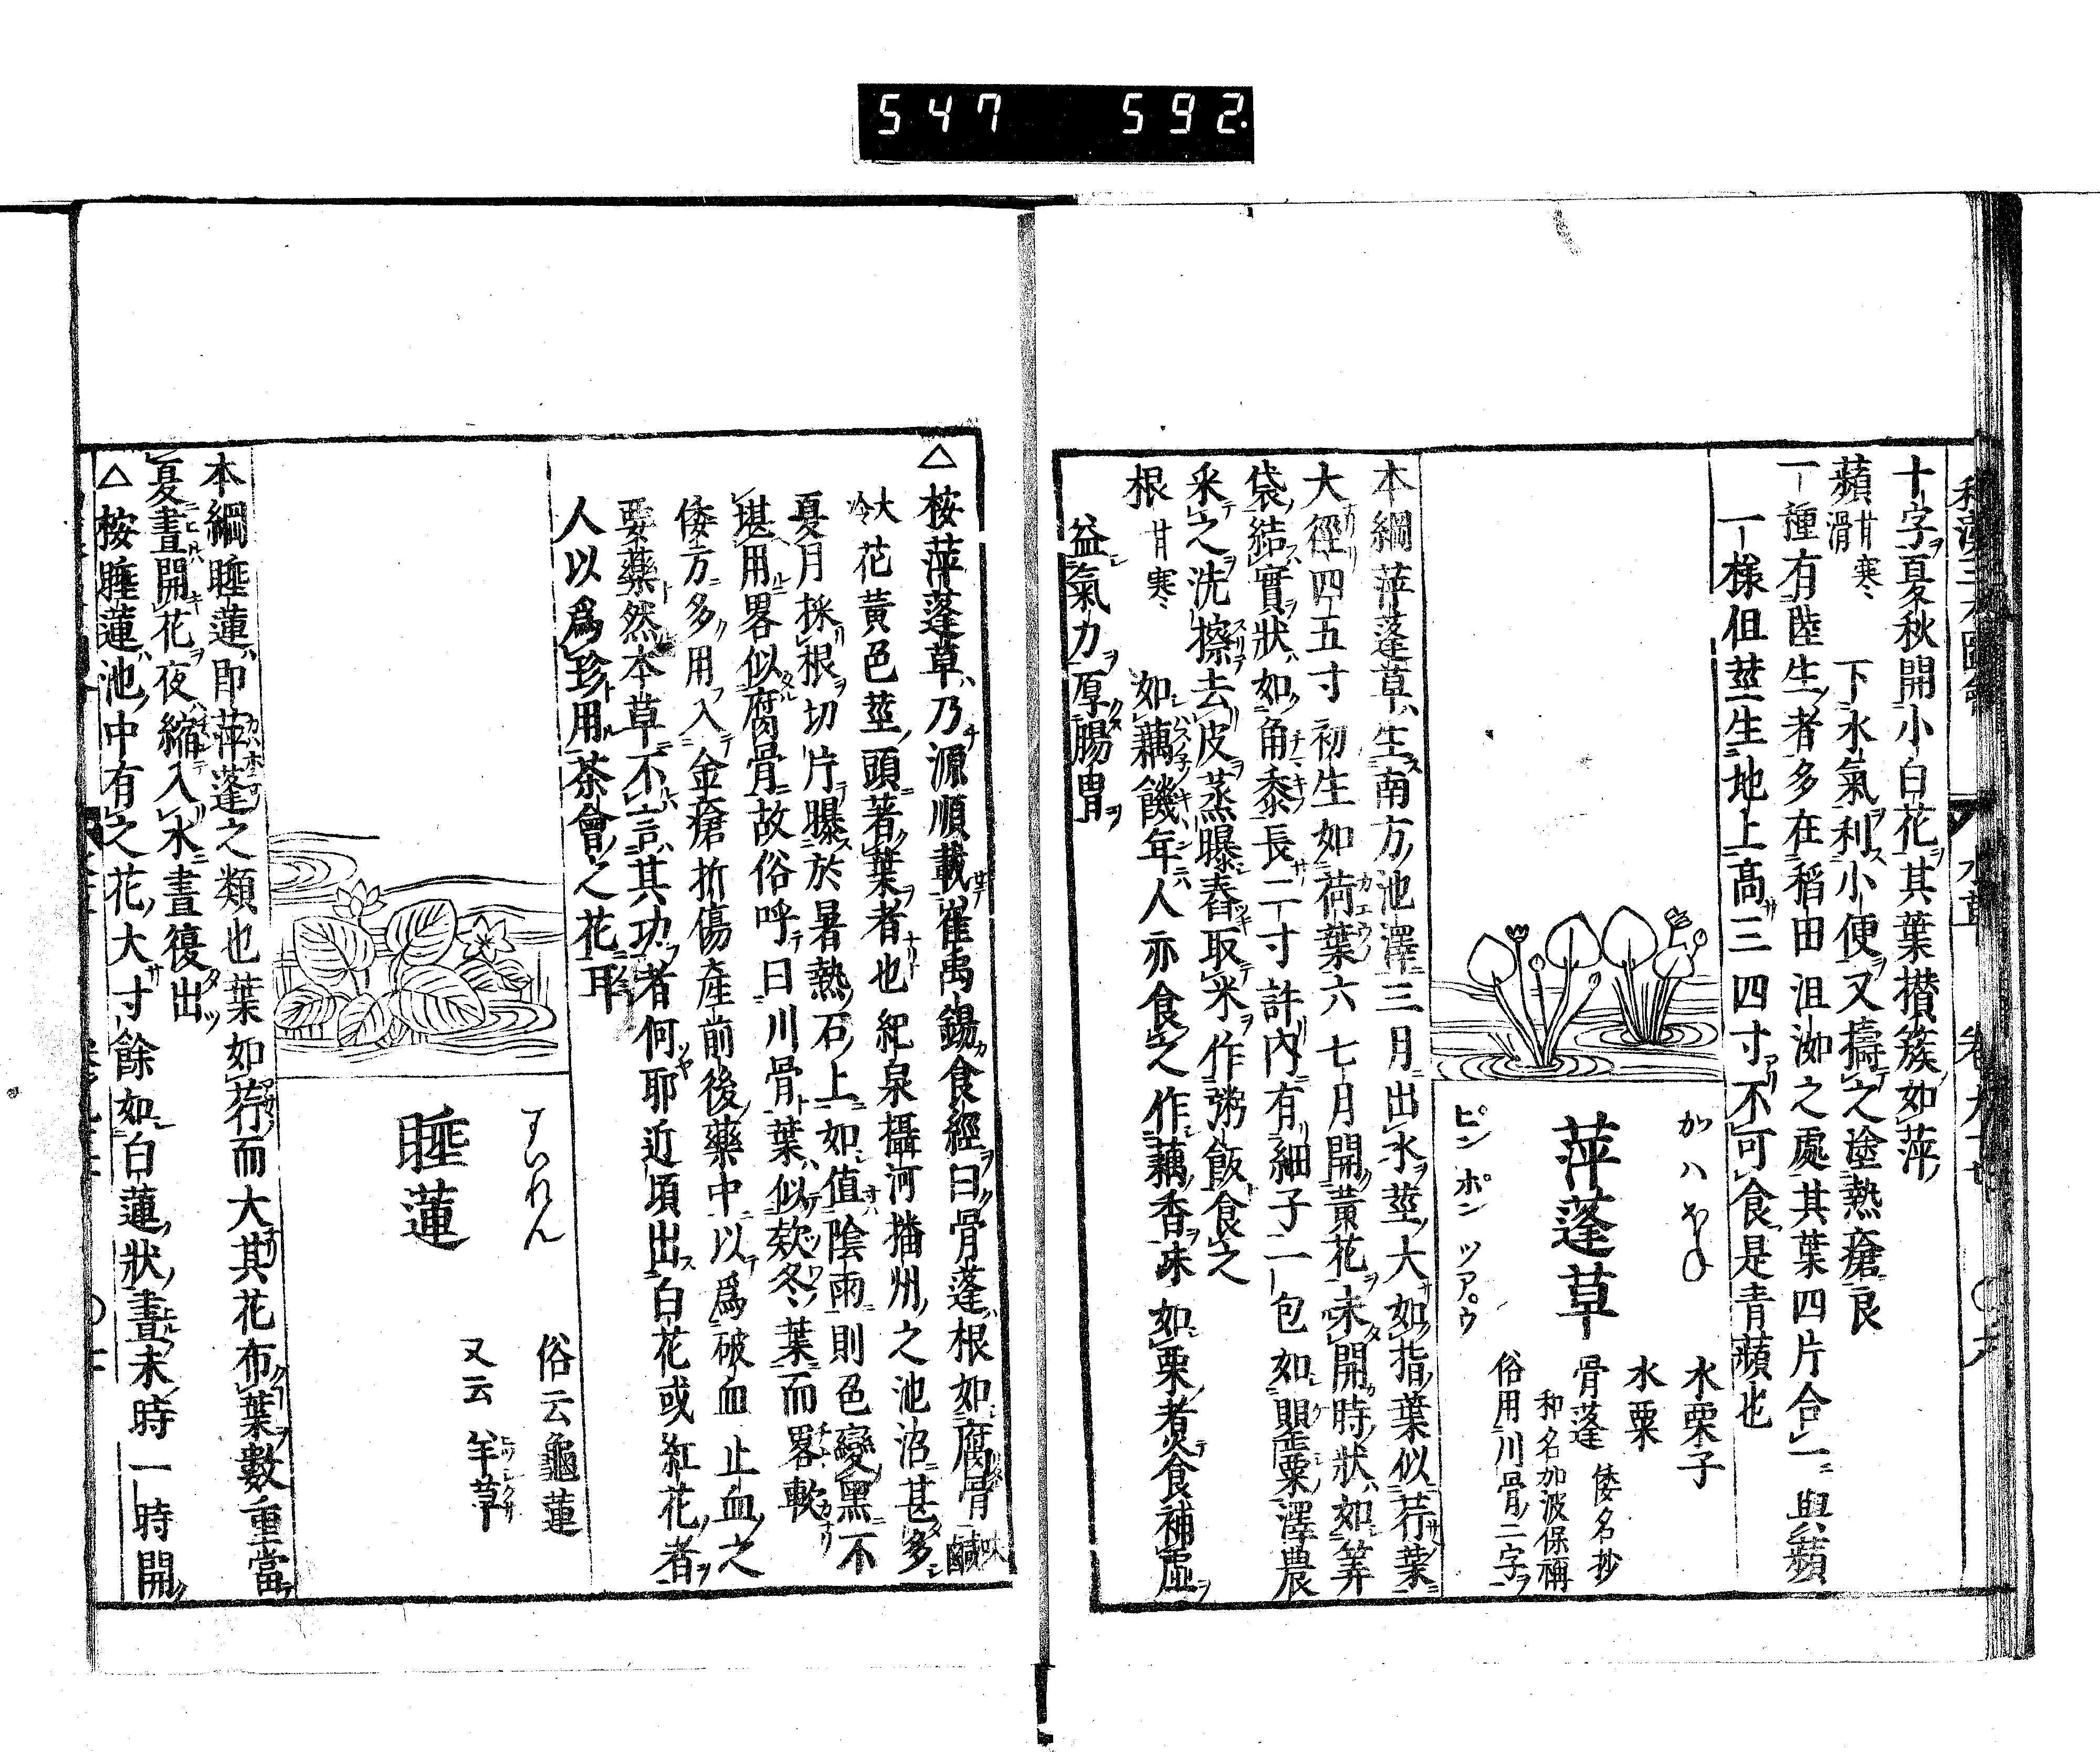 547 592.
十字夏秋開小白花其葉攅簇如萍
蘋 甘寒滑 下水氣利小便又擣之塗熱瘡良
一種有陸生者多在稻田沮洳之處其葉四片合一與蘋
一樣但莖生地上高三四寸不可食是青蘋也
かハほね
萍蓬草
ピンポンツアウ
水栗子
水粟
骨蓬 倭名抄
和名加波保禰
俗用川骨二字
本綱萍蓬草生南方池澤三月出水莖大如指葉似荇葉
大徑四五寸初生如荷葉六七月開黃花未開時狀如筭
袋結實狀如角黍長二寸許內有細子一包如罌粟澤農
采之洗擦去皮蒸曝舂取米作粥飯食之
根 甘寒 如藕饑年人亦食之作藕香味如栗煮食補虛
益氣力厚腸胃
△桉萍蓬草乃源順載崔禹錫食經曰骨蓬根如腐骨味鹹
大冷花黃色莖頭著葉者也紀泉攝河播州之池沼甚多
夏月採根切片曝於暑熱石上如値陰雨則色變黑不
堪用畧似腐骨故俗呼曰川骨葉似欵冬葉而畧軟
倭方多用入金瘡折傷產前後藥中以爲破血止血之
要藥然本草不言其功者何耶近頃出白花或紅花者
人以爲珍用茶會之花耳
すいれん
睡蓮
俗云龜蓮
又云羊草
本綱睡蓮即萍蓬之類也葉如荇而大其花布葉數重當
夏晝開花夜縮入水晝復出
△桉睡蓮池中有之花大寸餘如白蓮狀晝未時一時開